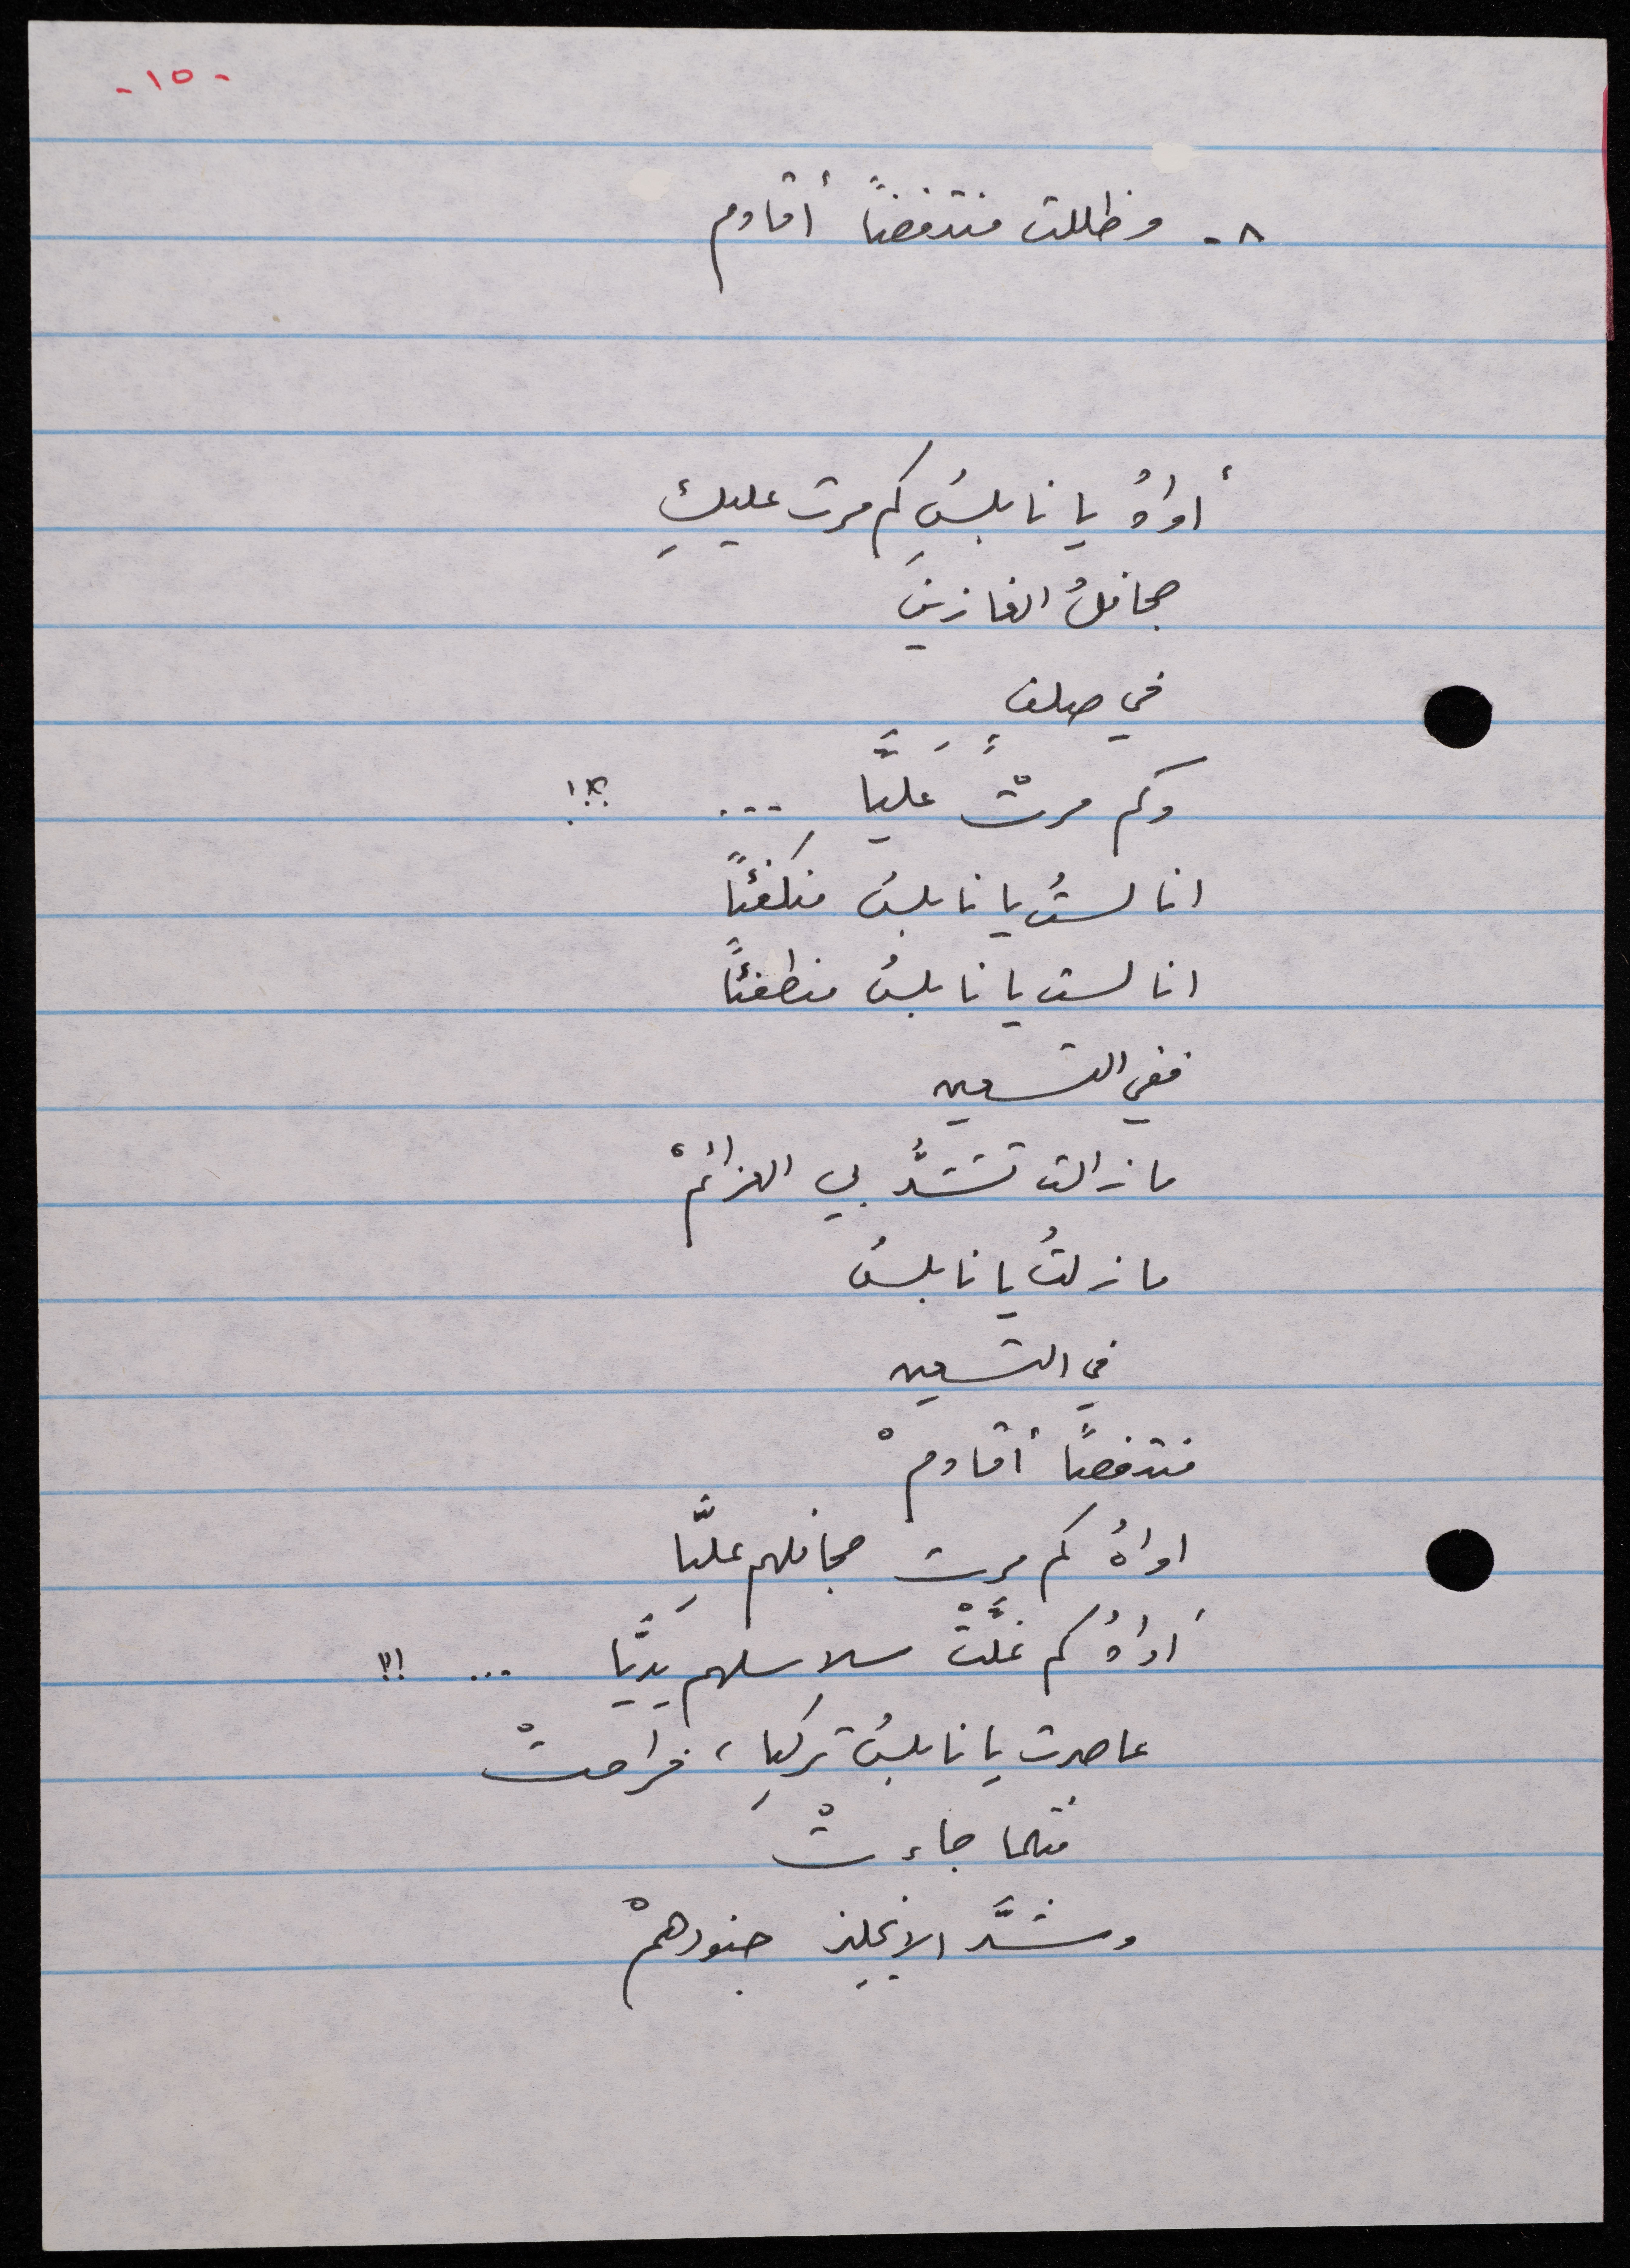 - ١٥ -
٨ - وظللت منتفضاً أقاوم
أواهُ يا نابلسُ كم مرت عليكِ
جحافلُ الغازينَ
في صلفٍ
وكم مرتْ عَليَّا ... ؟!
انا لستُ يا نابلسُ منكفئاً
انا لست يا نابلسُ منطفئاً
ففي التسعين
ما زالت تشتدُّ بي العزائمْ
ما زلتُ يا نابلسُ
في التسعين
منتفضاً أقاومْ
اواهُ كم مرت جحافلهم عليَّا
أواهُ كم غلَّتْ سلاسلهم يديَّا ... !!
عاصرت يا نابلسُ تركيا ، فراحتْ
مثلما جاءتْ
وشدَّ الانجليز جنودهمْ